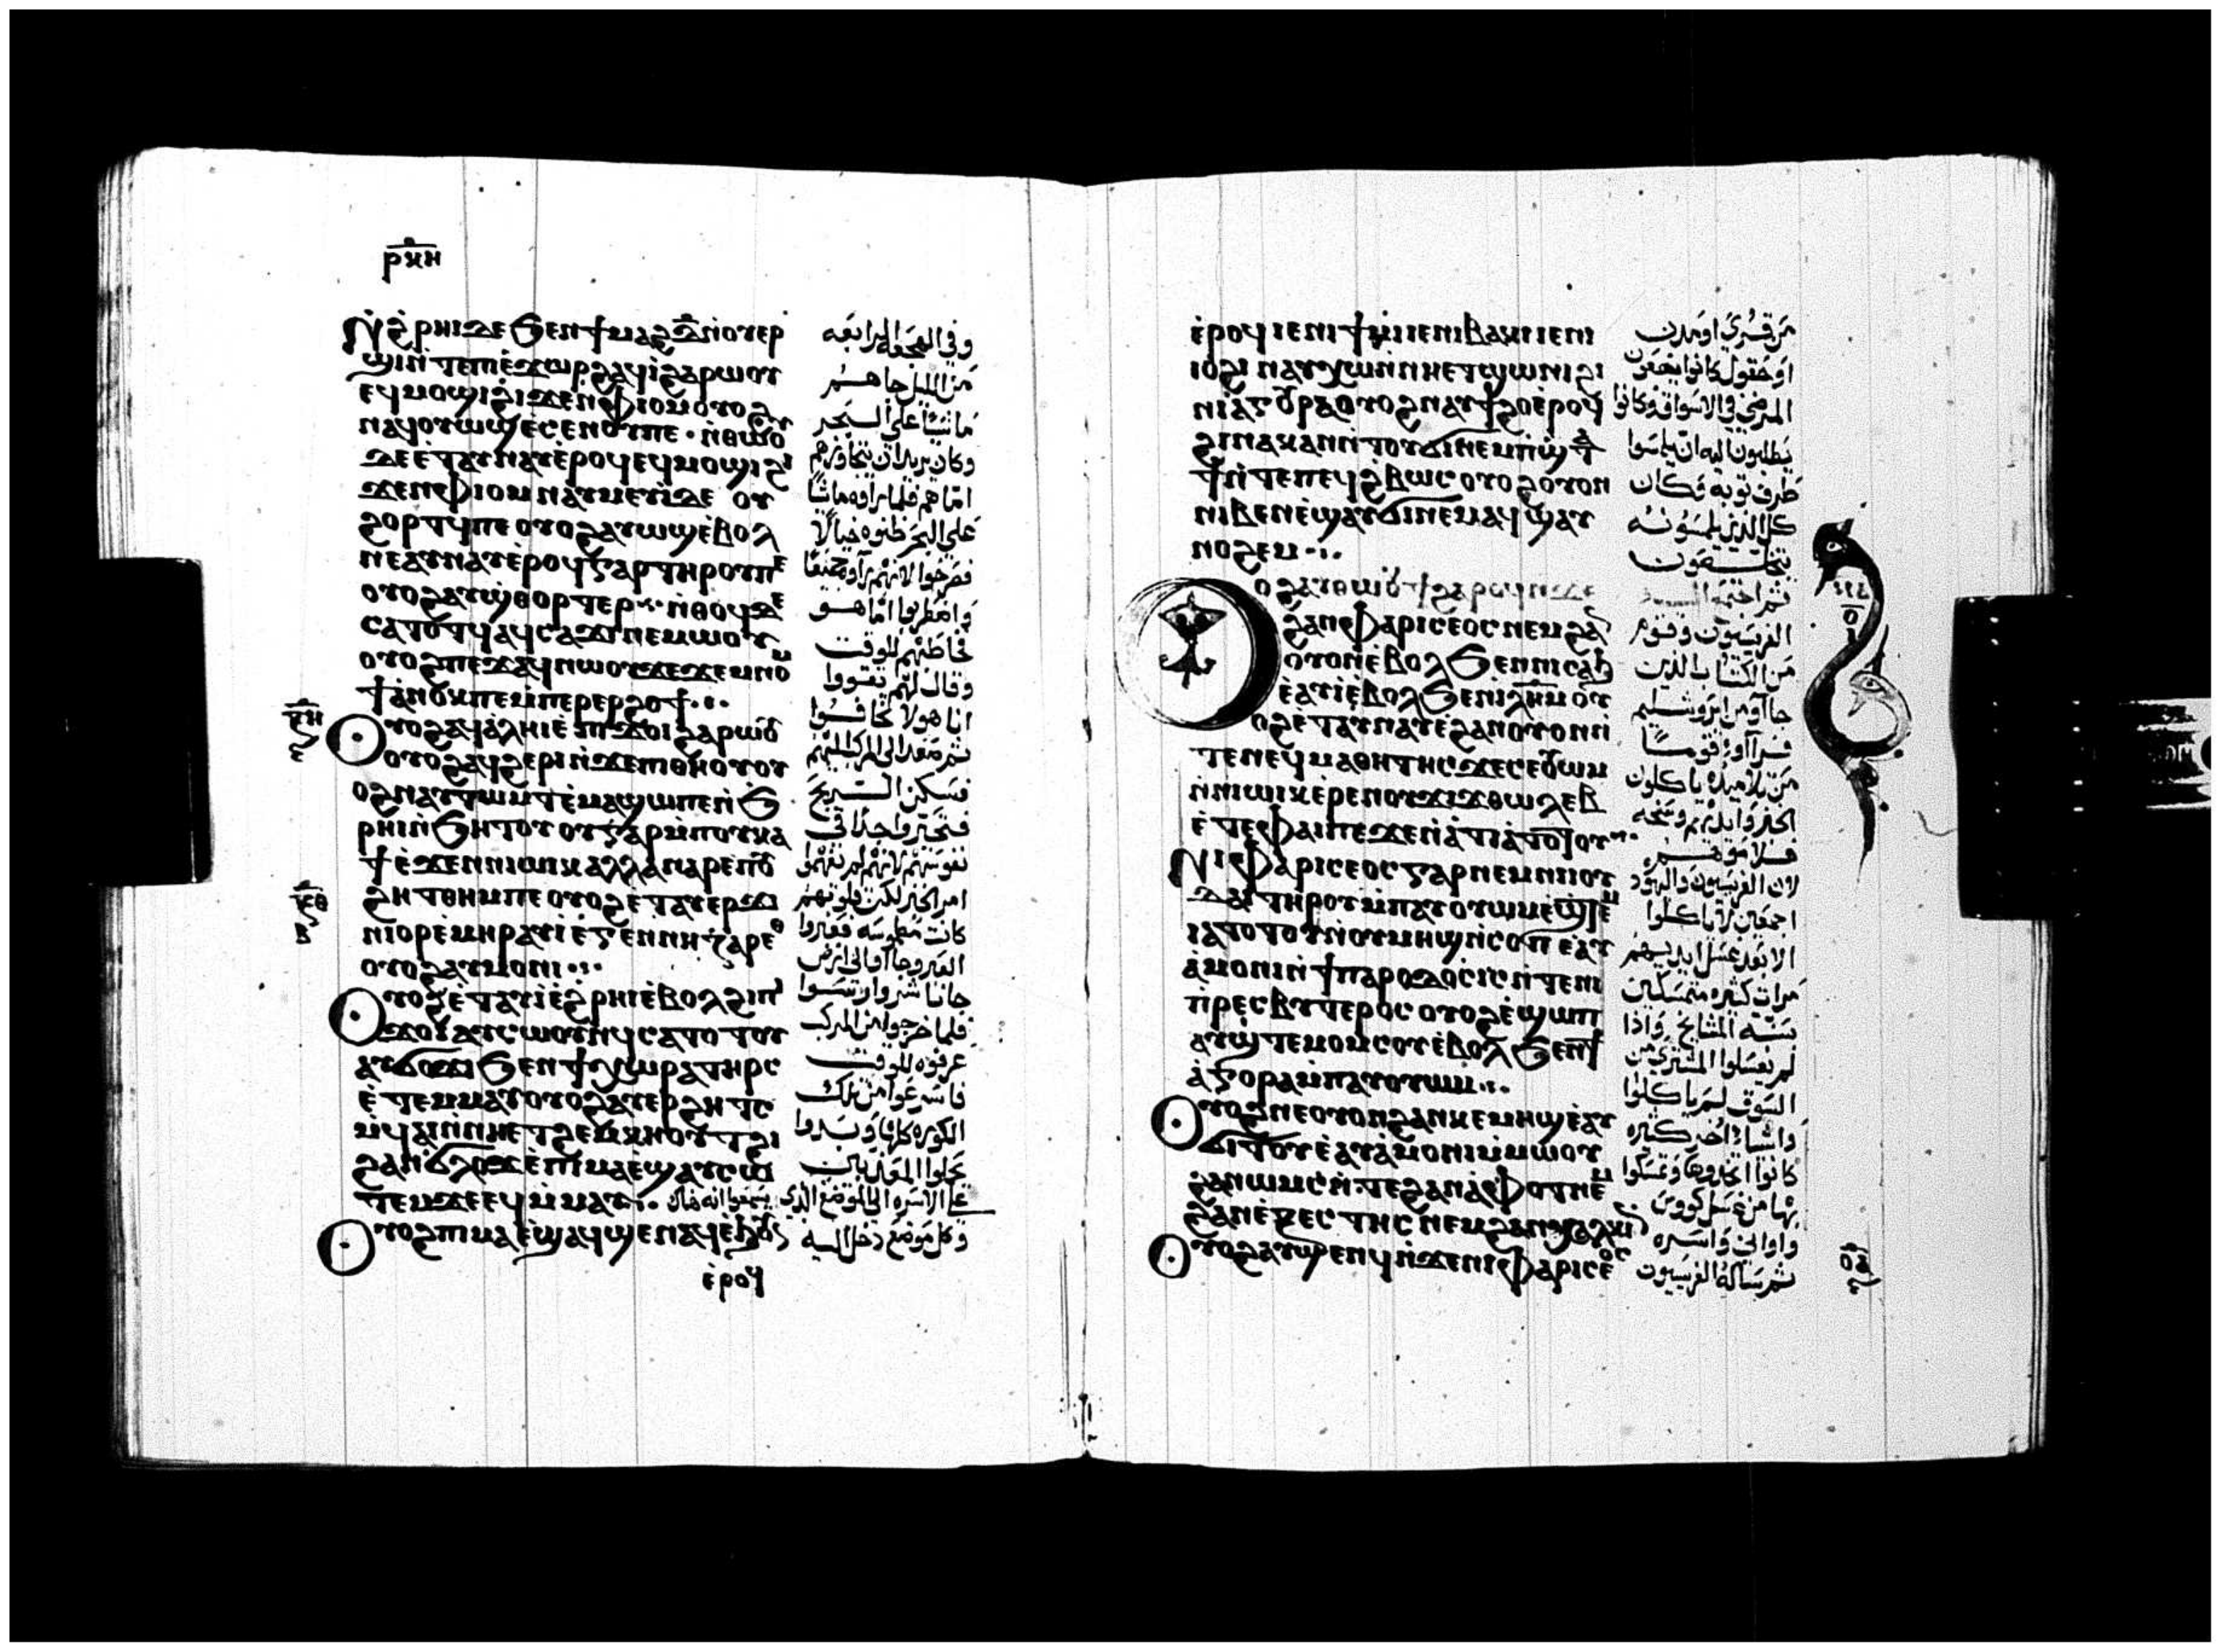 ⲣⲕⲏ
Ⲛ̀ϩ̀ⲣⲏⲓ ⲇⲉ ϧⲉⲛ ϯⲙⲁϩⲇ̅ ⲛ̀ⲟⲩⲉⲣ
ϣⲓ ⲛ̀ⲧⲉ ⲡⲓⲉ̀ϫⲱⲣϩ ⲁϥⲓ̀ ϩⲁⲣⲱⲟⲩ
ⲉϥⲙⲟϣⲓ ϩⲓϫⲉⲛ ⲫⲓⲟⲙ ⲟⲩⲟϩ
ⲛⲁϥⲟⲩⲱϣ ⲉ̀ⲥⲉⲛⲟⲩ ⲡⲉ · ⲛ̀ⲑⲱⲟⲩ
ⲇⲉ ⲉ̀ⲧⲁⲩⲛⲁⲩ ⲉ̀ⲣⲟϥ ⲉϥⲙⲟϣⲓ ϩⲓ
ϫⲉⲛ ⲫⲓⲟⲙ ⲛⲁⲩⲙⲉⲩⲓ̀ ϫⲉ ⲟⲩ
ϩⲟⲣⲧϥ ⲡⲉ ⲟⲩⲟϩ ⲁⲩⲱϣ ⲉ̀ⲃⲟⲗ
ⲛⲉⲁⲩⲛⲁⲩ ⲉ̀ⲣⲟϥ ⲅⲁⲣ ⲧⲏⲣⲟⲩ ⲡⲉ
ⲟⲩⲟϩ ⲁⲩϣ̀ⲑⲟⲣⲧⲉⲣ ⲛ̀ⲑⲟϥ ⲇⲉ
ⲥⲁⲧⲟⲧϥ ⲁϥⲥⲁϫⲓ ⲛⲉⲙⲱⲟⲩ
ⲟⲩⲟϩ ⲡⲉϫⲁϥ ⲛⲱⲟⲩ ϫⲉ ϫⲉⲙⲛⲟⲙ
ϯ ⲁ̀ⲛⲟⲕ ⲡⲉ ⲙ̀ⲡⲉⲣⲉⲣϩⲟϯ
Ⲟⲩⲟϩ ⲁϥⲁ̀ⲗⲏⲓ ⲉ̀ⲡϫⲟⲓ ϩⲁⲣⲱⲟⲩ
ⲟⲩⲟϩ ⲁϥϩⲉⲣⲓ ⲛ̀ϫⲉ ⲡⲓⲑⲏⲟⲩ ⲟⲩ
ⲟϩ ⲛⲁⲩⲧⲱⲙⲧ ⲉ̀ⲙⲁϣⲱ ⲡⲉ ⲛ̀ϧ
ⲣⲏⲓ ⲛ̀ϧⲏⲧⲟⲩ ⲟⲩ ⲅⲁⲣ ⲙ̀ⲡⲟⲩⲕⲁ
ϯ ⲉ̀ϫⲉⲛ ⲛⲓⲱⲓⲕ ⲁⲗⲗⲁ ⲛⲁⲣⲉ ⲡⲟⲩ
ϩⲏⲧ ⲑⲏⲙ ⲡⲉ ⲟⲩⲟϩ ⲉ̀ⲧⲁⲩⲉⲣϫⲓ
ⲛⲓⲟⲣ ⲉ̀ⲙⲏⲣ ⲁⲩⲓ̀ ⲉ̀ⲅⲉⲛⲛⲏⲍⲁⲣⲉⲑ
ⲟⲩⲟϩ ⲁⲩⲙⲟⲛⲓ
Ⲟⲩⲟϩ ⲉ̀ⲧⲁⲩⲓ̀ ⲉ̀ϩ̀ⲣⲏⲓ ⲉ̀ⲃⲟⲗ ϩⲓ ⲡⲓ
ϫⲟⲓ ⲁⲩⲥⲱⲟⲩⲛϥ ⲥⲁⲧⲟⲧⲟⲩ
ⲁⲩϭⲟϫⲓ ϧⲉⲛ ϯⲭⲱⲣⲁ ⲧⲏⲣⲥ
ⲉ̀ⲧⲉⲙⲙⲁⲩ ⲟⲩⲟϩ ⲁⲩⲉⲣϩⲏⲧⲥ
ⲙ̀ϥⲁⲓ ⲛ̀ⲛⲏⲉⲧϩⲉⲙⲕⲏⲟⲩⲧ ϩⲓ
ϩⲁⲛϭⲗⲟϫ ⲉ̀ⲡⲓⲙⲁ ⲉ̀ϣⲁⲩⲥⲱ
ⲧⲉⲙ ϫⲉ ⲉϥⲙ̀ⲙⲁⲩ
Ⲟⲩⲟϩ ⲡⲓⲙⲁ ⲉ̀ϣⲁϥϣⲉⲛⲁϥ ⲉ̀ϧⲟⲩⲛ
ⲉ̀ⲣⲟϥ
وفي الهجعه الرابعه
من الليل جا هــم
ماشيًا على البحر
وكان يريد ان يتجاوزهم
امّا هم فلما راوه ماشيًا
على البحر ظنوه خيالًا
فصرخوا لانهم راوه جميعًا
واضطربوا امّا هـو
فخاطبهم للوقت
وقال لهم تقووا
انا هو لا تخافــوا
ثم صعد الى المركب اليهم
فسكن الــريح
فتحيروا جدًا في
نفوسهم لانهم لم يفهموا
امر الخبز لكن قلوبهم
كانت مطموسه فعبروا
العبر وجاآوا الى ارض
جاناشر وارسـوا
فلما خرجوا من المركب
عرفوه للوقت
فاسرعوا من تلك
الكوره كلها وبدوا
يحملوا المعذبين
على الاسره الى الموضع الذي يسمعوا انه هناك
وكل موضع دخل اليه
ⲉ̀ⲣⲟϥ ⲓⲉ ⲛⲓϯⲙⲓ ⲓⲉ ⲛⲓⲃⲁⲕⲓ ⲓⲉ ⲛⲓ
ⲓⲟϩⲓ ⲛⲁⲩⲭⲱ ⲛ̀ⲛⲏⲉⲧϣⲱⲛⲓ ϩⲓ
ⲛⲓⲁ̀ⲅⲟⲣⲁ ⲟⲩⲟϩ ⲛⲁⲩϯϩⲟ ⲉ̀ⲣⲟϥ
ϩⲓⲛⲁ ⲕⲁⲛ ⲛ̀ⲧⲟⲩϭⲓ ⲛⲉⲙ ⲡ̀ϣⲧⲁ
ϯ ⲛ̀ⲧⲉ ⲡⲉϥϩ̀ⲃⲱⲥ ⲟⲩⲟϩ ⲟⲩⲟⲛ
ⲛⲓⲃⲉⲛ ⲉ̀ϣⲁⲩϭⲓ ⲛⲉⲙⲁϥ ϣⲁⲩ
ⲛⲟϩⲉⲙ
Ⲟⲩⲟϩ ⲁⲩⲑⲱⲟⲩϯ ϩⲁⲣⲟϥ ⲛ̀ϫⲉ
ϩⲁⲛⲫⲁⲣⲓⲥⲉⲟⲥ ⲛⲉⲙ ϩⲁⲛ
ⲟⲩⲟⲛ ⲉ̀ⲃⲟⲗ ϧⲉⲛ ⲛⲓⲥⲁϧ
ⲉ̀ⲁⲩⲓ̀ ⲉ̀ⲃⲟⲗ ϧⲉⲛ ⲓ̀ⲗⲏⲙ ⲟⲩ
ⲟϩ ⲉ̀ⲧⲁⲩⲛⲁⲩ ⲉ̀ϩⲁⲛⲟⲩⲟⲛ ⲛ̀
ⲧⲉ ⲛⲉϥⲙⲁⲑⲏⲧⲏⲥ ϫⲉ ⲥⲉⲟⲩⲱⲙ
ⲛ̀ⲛⲓⲱⲓⲕ ⲉ̀ⲣⲉ ⲛⲟⲩϫⲓϫ ⲑⲱⲗⲉⲃ
ⲉ̀ⲧⲉ ⲫⲁⲓ ⲡⲉ ϫⲉ ⲛ̀ⲁⲧⲓⲁ̀ⲧⲟⲧⲟⲩ
Ⲛⲓⲫⲁⲣⲓⲥⲉⲟⲥ ⲅⲁⲣ ⲛⲉⲙ ⲛⲓⲓⲟⲩ
ⲇⲁⲓ ⲧⲏⲣⲟⲩ ⲙ̀ⲡⲁⲩⲟⲩⲱⲙ ⲉ̀ϣⲧⲉⲙ
ⲓⲁⲧⲟⲧⲟⲩ ⲛ̀ⲟⲩⲙⲏϣ ⲛ̀ⲥⲟⲡ ⲉⲁⲩ
ⲁ̀ⲙⲟⲛⲓ ⲛ̀ϯⲡⲁⲣⲟⲇⲟⲥⲓⲥ ⲛ̀ⲧⲉ ⲛⲓ
ⲡ̀ⲣⲉⲥⲃⲩⲧⲉⲣⲟⲥ ⲟⲩⲟϩ ⲉ̀ϣⲱⲡ
ⲁⲩϣⲧⲉⲙⲟⲙⲥⲟⲩ ⲉ̀ⲃⲟⲗ ϧⲉⲛ ϯ
ⲁ̀ⲅⲟⲣⲁ ⲙ̀ⲡⲁⲩⲟⲩⲱⲙ
Ⲟⲩⲟϩ ⲛⲉ ⲟⲩⲟⲛ ϩⲁⲛⲕⲉⲙⲏϣ ⲉ̀ⲁⲩ
ϭⲓⲧⲟⲩ ⲉ̀ⲁⲩⲁ̀ⲙⲟⲛⲓ ⲙ̀ⲙⲱⲟⲩ
ϩⲁⲛⲱⲙⲥ ⲛ̀ⲧⲉ ϩⲁⲛⲁ̀ⲫⲟⲧ ⲛⲉⲙ
ϩⲁⲛⲝⲉⲥⲧⲏⲥ ⲛⲉⲙ ϩⲁⲛⲭⲁⲗⲕⲓⲟⲛ
Ⲟⲩⲟϩ ⲁⲩϣⲉⲛϥ ⲛ̀ϫⲉ ⲛⲓⲫⲁⲣⲓⲥⲉⲟⲥ
من قرى او مدن
او حقول كانوا يضعون
المرضى في الاسواق وكانوا
يطلبون اليه ان يلمسوا
طرف ثوبه وكان
كل الذين يلمسونه
يخلـصون
ثم اجتمع اليه
الفريسيون وقوم
من الكتاب الذين
جاآو من ايروشليم
فرآاوا قومًا
من تلاميذه ياكلون
الخبز وايديهم وسخه
لان الفريسيون واليهود
اجمعين لا ياكلوا
الا بعد غسل ايديهم
مرات كثيره متمسكين
بسنه المشايخ واذا
لم يغسلوا المشترى من
السوق لم ياكلوا
واشيا اخر كثيره
كانوا اتخذوها وتمسكوا
بها من غسل كووس
واواني واسره
ثم ساله الفريسيون